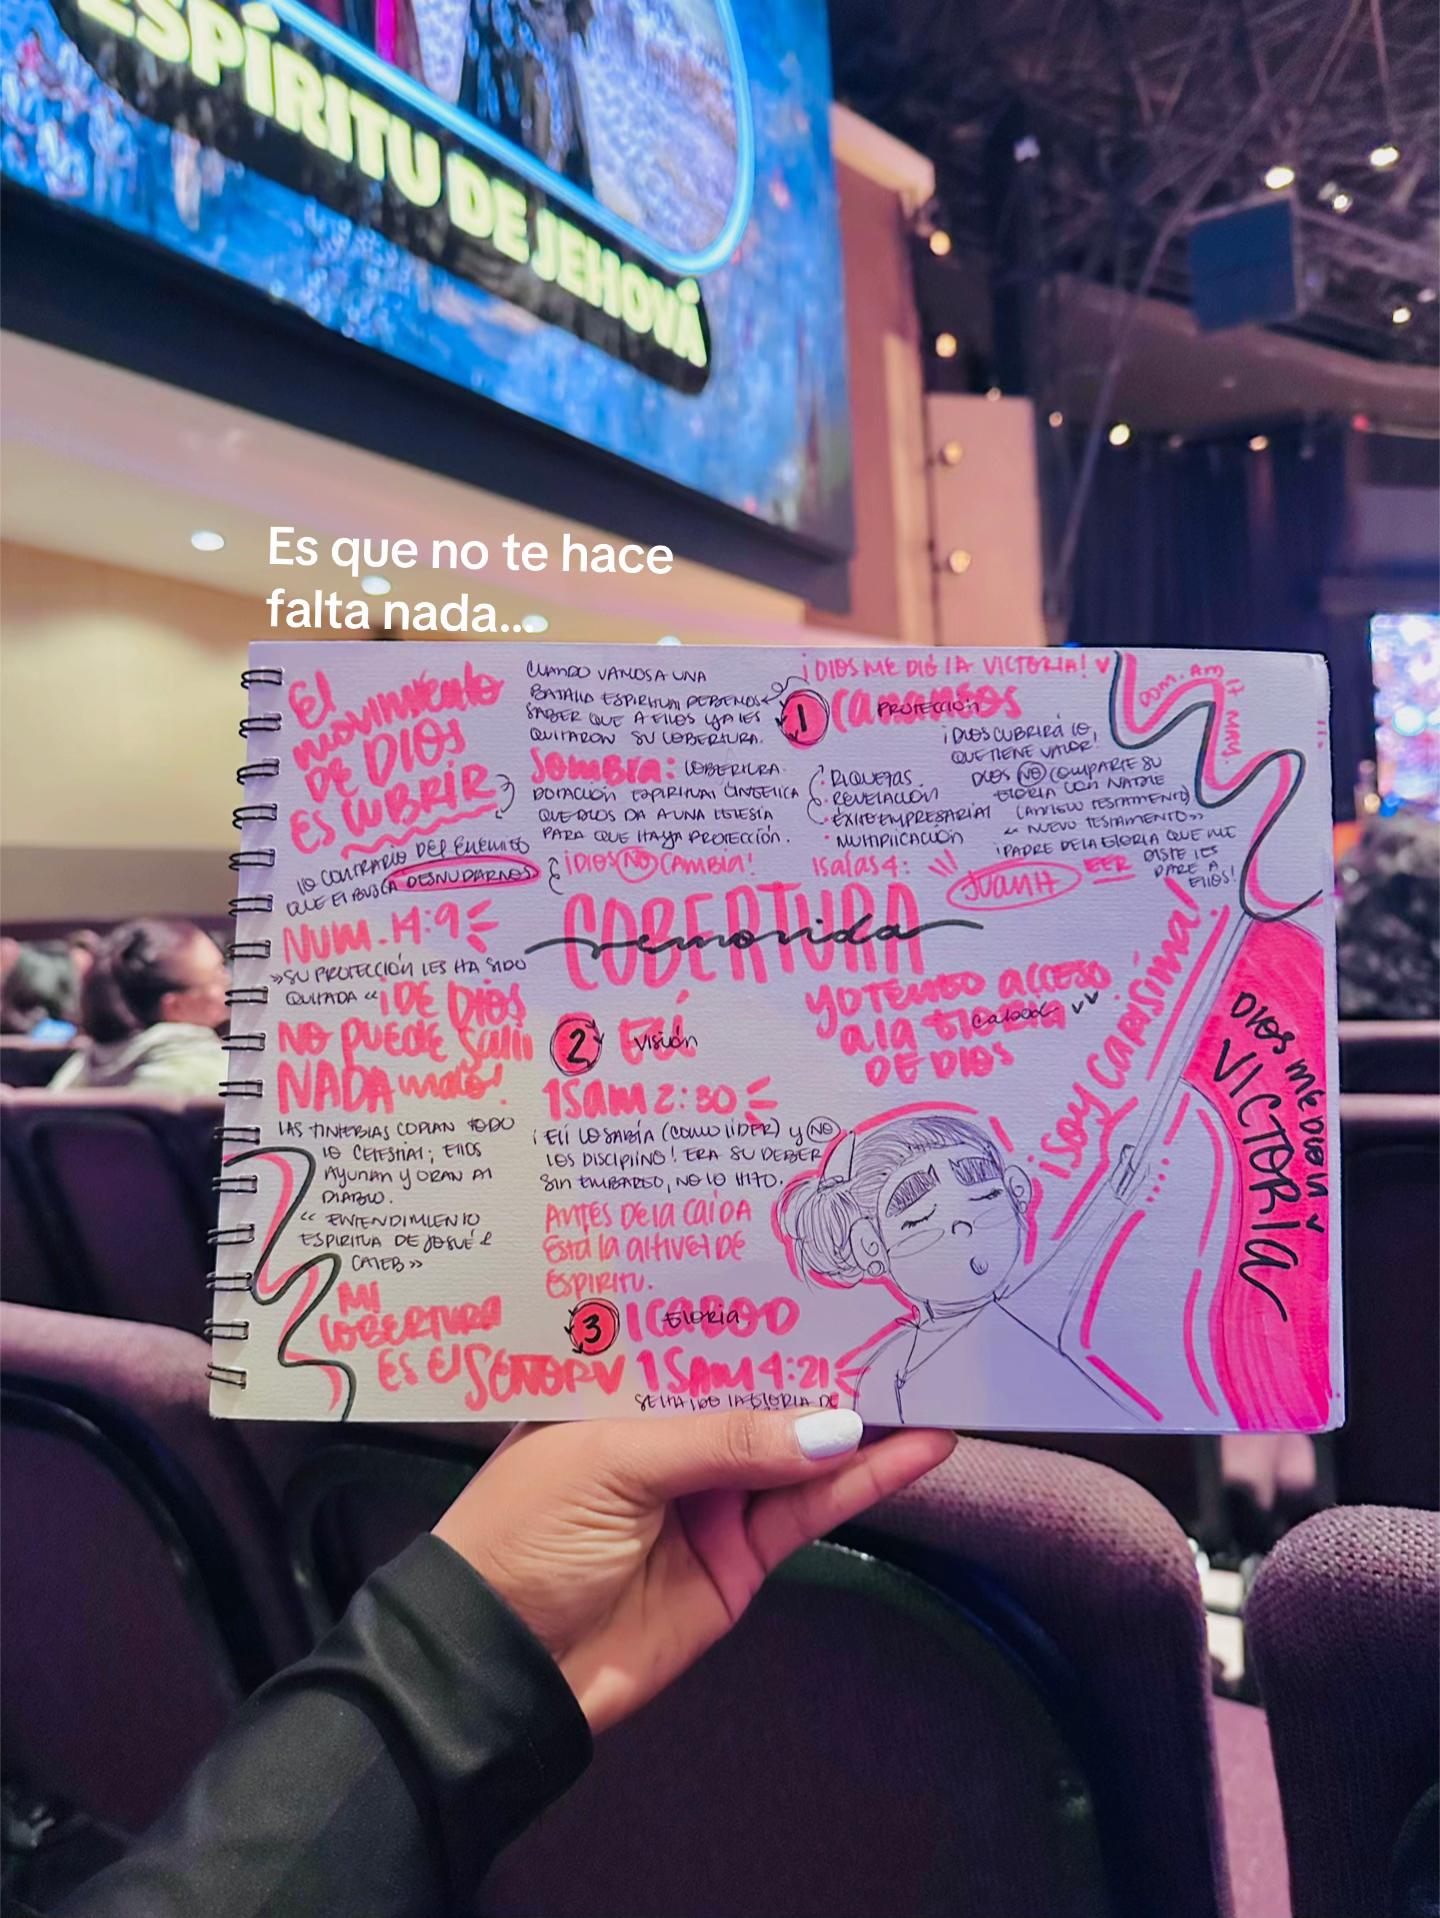 ESPÍRITU DE JEHOVÁ
Es que no te hace
falta nada...
El
movimiento
DE DIOS
ES CUBRIR
lo contrario DEL ENEMIGO
QUE EL BUSCA DESNUDARNOS
NUM. 14:9
»SU PROTECCIÓN LES HA SIDO
QUITADA «¡DE DIOS
NO PUEDE Salir
NADA malo!
LAS TINIEBLAS COPIAN TODO
lo CELESTIAL; ELLOS
AYUNAN y ORAN AL
DIABLO.
« ENTENDIMIENTO
ESPIRITUA DE JOSUÉ &
CALEB »
MI
COBERTURA
ES El SEÑOR
CUANDO VAMOS A UNA
BATALLA ESPIRITUAL DEBEMOS
SABER QUE A ELLOS YA LES
QUITARON SU COBERTURA.
Sombra: COBERTURA.
DOTACIÓN ESPIRITUAL ANGELICA
QUE DIOS DA A UNA IGLESIA
PARA QUE HAYA PROTECCIÓN.
¡DIOS NO CAMBIA!
¡DIOS ME DIÓ LA VICTORIA!
1 Cananeos
PROTECCIÓN
RIQUEZAS.
REVELACIÓN
ÉXITO EMPRESARIAL
MULTIPLICACIÓN
¡DIOS CUBRIRÁ LO,
QUE TIENE VALOR!
DIOS NO COMPARTE SU
GLORIA CON NADIE
(ANTIGUO TESTAMENTO)
« NUEVO TESTAMENTO»
¡PADRE DE LA GLORIA QUE ME
DISTE LES
DARE A
ELLOS!
Isaías 4:
JUAN 17
LEER
DOM. AM 17 MAY.
COBERTURA
removida
2 Elí
visión
1 Sam 2:30
¡ELÍ LO SABÍA (COMO LÍDER) y NO
LOS DISCIPLINO! ERA SU DEBER
SIN EMBARGO, NO LO HIZO.
ANTES DE la CAÍDA
Está la altivez DE
ESPIRITU.
3 ICABOD
GLORIA
1 SAM 4:21
SE HA IDO LA GLORIA DE
YO TENGO ACCESO
a la GLORIA
cabod
DE DIOS
¡Soy Carísima!
DIOS ME DIÓ LA
VICTORIA